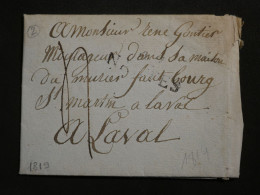 A Monsieur Rene Gontier
Messager dans sa maison
du murier faut bourg
St martin a laval
A Laval
1819